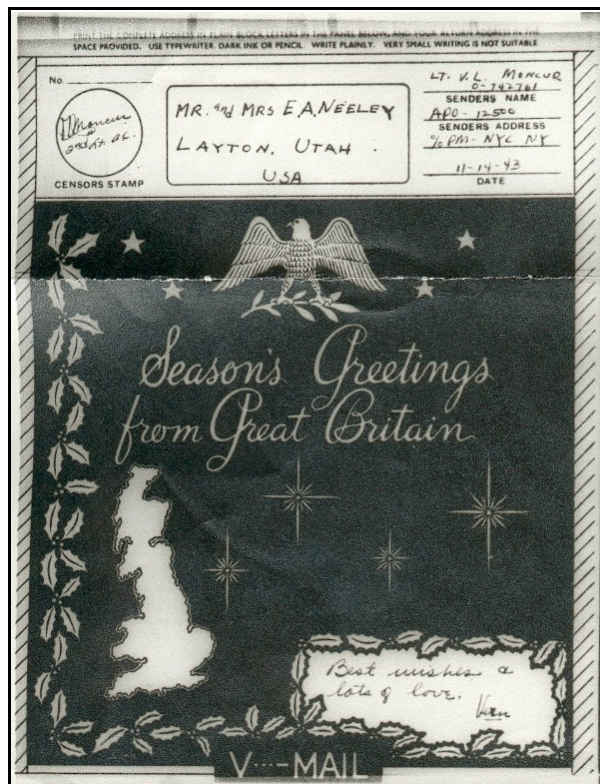 PRINT THE COMPLETE ADDRESS IN PLAIN BLOCK LETTERS IN THE PANEL BELOW, AND YOUR RETURN ADDRESS IN THE
SPACE PROVIDED. USE TYPEWRITER, DARK INK OR PENCIL. WRITE PLAINLY. VERY SMALL WRITING IS NOT SUITABLE
No.
Moncur
2nd Lt. A.C.
CENSORS STAMP
MR. and MRS E.A. NEELEY
LAYTON, UTAH
USA
LT. V.L. MONCUR
O-742761
SENDERS NAME
APO-12500
SENDERS ADDRESS
% PM-NYC NY
11-14-43
DATE
Season's Greetings
from Great Britain
Best wishes &
lots of love.
Vern
V···—MAIL